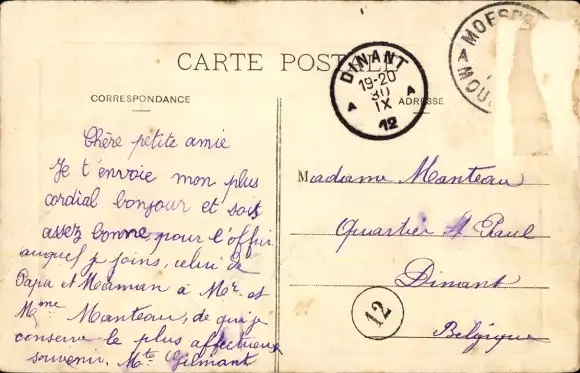 CARTE POSTALE
DINANT
19-20
30
IX
12
A A
MOESCR
MOU
CORRESPONDANCE
ADRESSE
Chère petite amie
Je t'envoie mon plus
cordial bonjour et sois
assez bonne, pour l'offrir
auquel je joins, celui de
Papa et Maman à Mr. et
Mme Manteau, de qui je
conserve le plus affectueux
souvenir. Mte Gilmant
Madame Manteau
Quartier St Paul
Dinant
Belgique
12